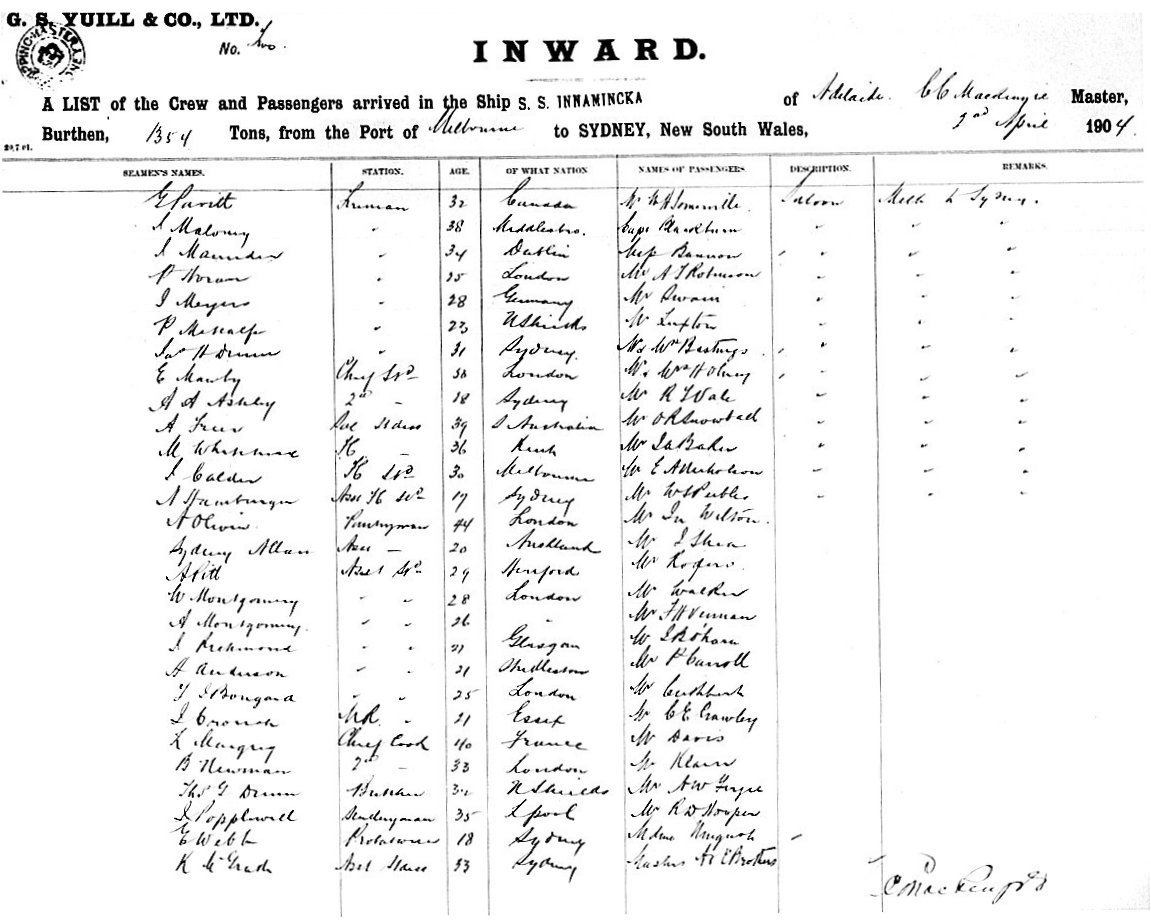 G. S. YUILL & CO., LTD.
No. Two.
INWARD.
A LIST of the Crew and Passengers arrived in the Ship S. S. INNAMINCKA of Adelaide. C C Mackenzie Master,
Burthen, 1354 Tons, from the Port of Melbourne to SYDNEY, New South Wales, 2nd April 1904.
20.7 01.
SEAMEN'S NAMES. STATION. AGE. OF WHAT NATION NAMES OF PASSENGERS. DESCRIPTION. REMARKS.
G Pavitt Fireman 32 Canada Mr W H Somerville Saloon Melb to Sydney.
J Malony " 38 Middlesbro. Capt Blackburn " " "
J Maunder " 34 Dublin Miss Bannon " " "
P Horan " 25 London Mr A J Robinson " " "
J Meyers " 28 Germany Mr Swain " " "
P Metcalfe " 23 N Shields Mr Luxton " " "
Jas H Drum " 31 Sydney. " " "
E Mawby Chief Std 30 London " " "
A A Ashby 2nd " 18 Sydney Mr R T Vale " " "
A Freer 39 S Australia Mr O R Snowball " " "
36 Kent Mr Baker " " "
J Calder 30 Melbourne Mr E A Nicholson " " "
A Hamburger 17 Sydney Mr W S Peebles " " "
A Olivier. Pantryman 44 London Mr Jn Wilson.
Sydney Allan Asst " 20 Auckland Mr J Shea
A Pitt Asst Std 29 Hereford Mr Rogers.
W Montgomery " " 28 London Mr Walker
A Montgomery. " " 26 " Mr F H Venman
J Richmond " " 21 Glasgow Mr J B O'Hara
A Anderson " " 21 Mr P Carroll
T J Bongard " " 25 London Mr Cuthbert
J Crouch M.R. " 21 Essex Mr C E Crawley
L Margrey Chief Cook 40 France Mr Davis
B Newman 2nd " 33 London Mr Klein
Thos G Drum Butcher 32 N Shields Mr A W
J Popplewell 35 L'pool Mr R D Hooper
E Webb 18 Sydney Mdme
K McGrade Asst Stdess 33 Sydney Masters Brothers
C C Mackenzie